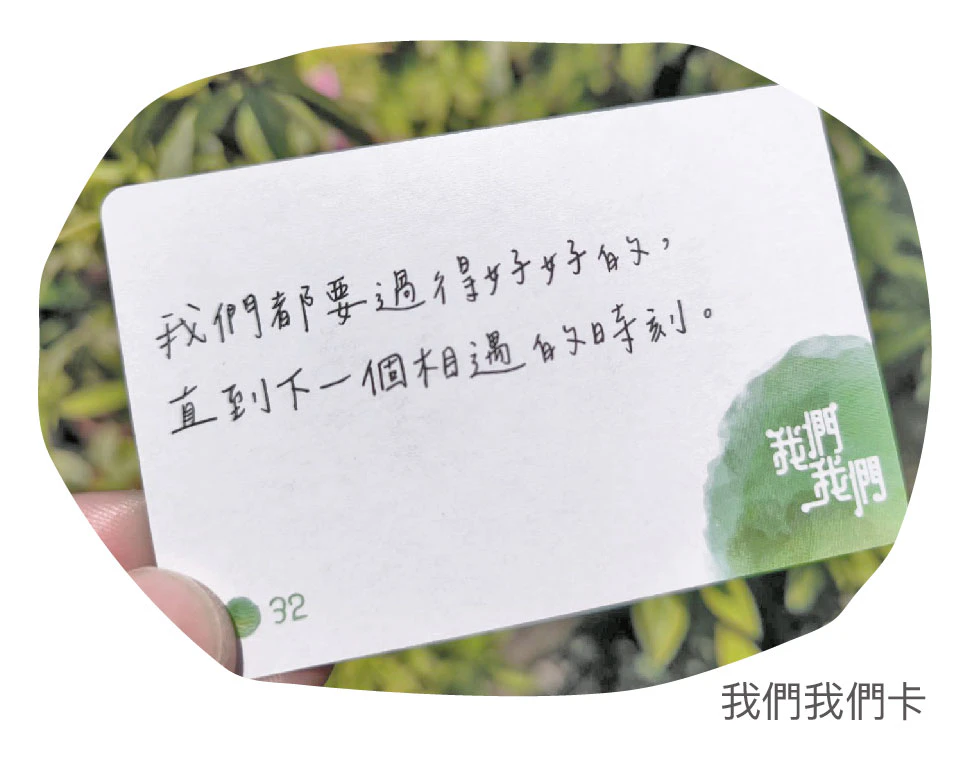 我們都要過得好好的，
直到下一個相遇的時刻。
我們
我們
32
我們我們卡